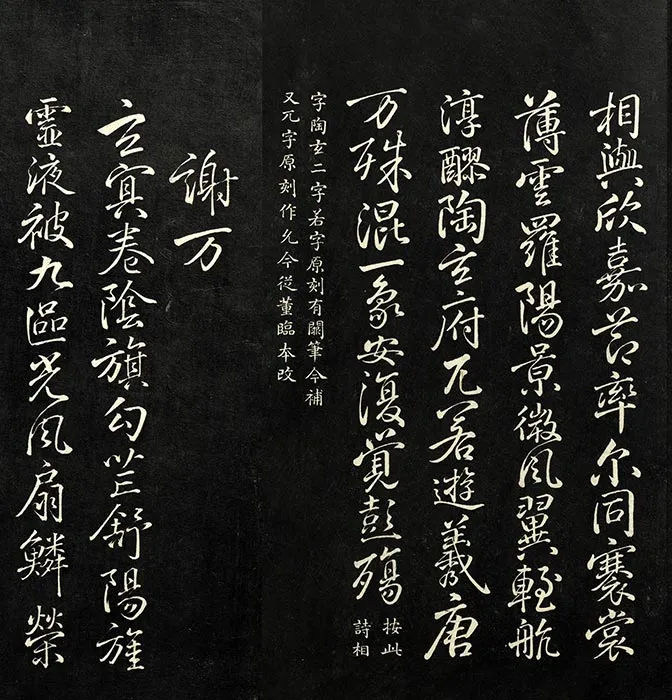 相與欣嘉節率尔同褰裳
薄雲羅陽景微風翼輕航
淳醪陶玄府兀若遊羲唐
万殊混一象安復覺彭殤
按此
詩相
字陶玄二字若字原刻有闕筆今補
又兀字原刻作允今從董臨本改
謝万
玄冥卷陰旗勾芒舒陽旌
靈液被九區光風扇鱗榮